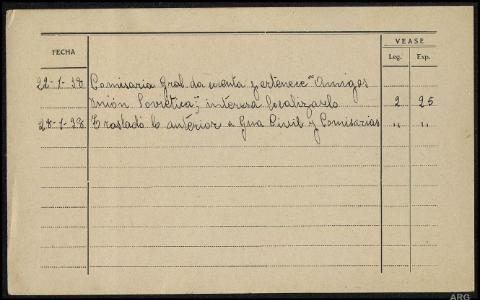 VEASE
FECHA
Leg. Exp.
22-1-38 Comisaria Gral da cuenta pertenece "Amigos
Unión Sovietica", interesa localizarlo 2 25
28-1-38 Traslado lo anterior a Gua Civil y Comisarias " "
ARG